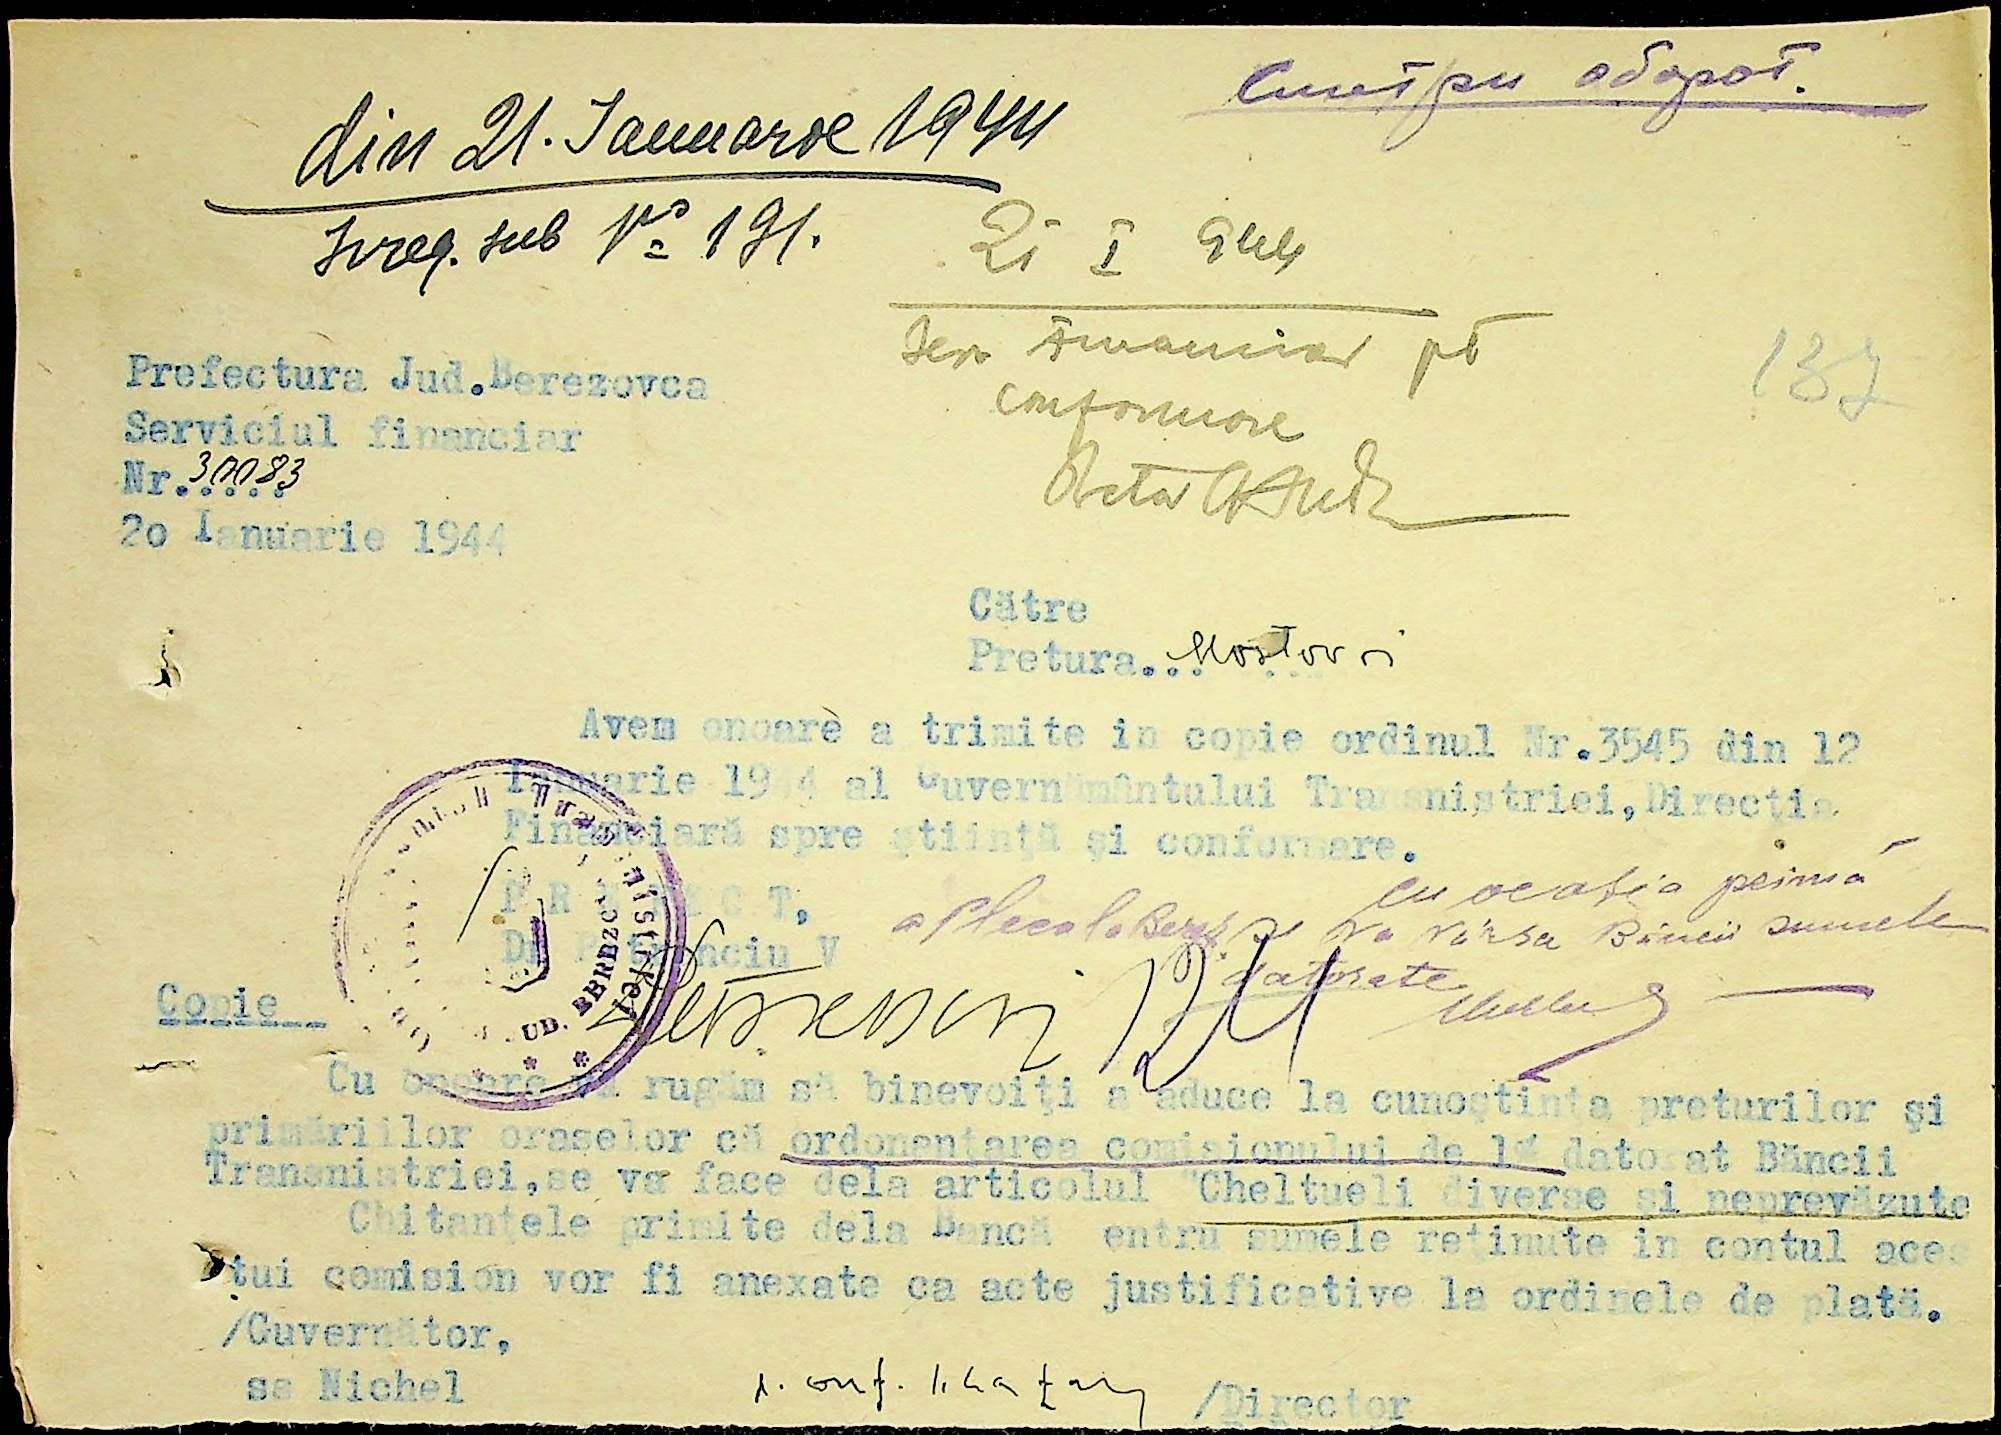 Смотри оборот.
din 21. Ianuarie 1944
Inreg. sub № 191.
21 I 944
Serv Financiar pt
conformare
137
Prefectura Jud.Berezovca
Serviciul financiar
Nr.30083
2o Ianuarie 1944
Către
Pretura...Mostovoi
Avem onoare a trimite in copie ordinul Nr.3545 din 12
Ianuarie 1944 al Guvernământului Transnistriei,Direcția
Financiară spre știință și conformare.
PREFECT,
Dr Petrenciu V
cu ocazia primă
a Plecal la Berez. se va vărsa Băncii sumele
datorate
Copie
JUD. BEREZOVCA
Cu onoare vă rugăm să binevoiți a aduce la cunoștința preturilor și
primăriilor orașelor că ordonanțarea comisionului de 1% datorat Băncii
Transnistriei,se va face dela articolul "Cheltueli diverse si neprevăzute
Chitanțele primite dela Bancă entru sumele reținute in contul aces
tui comision vor fi anexate ca acte justificative la ordinele de plată.
/Guvernător,
ss Nichel
p. conf.
/Director